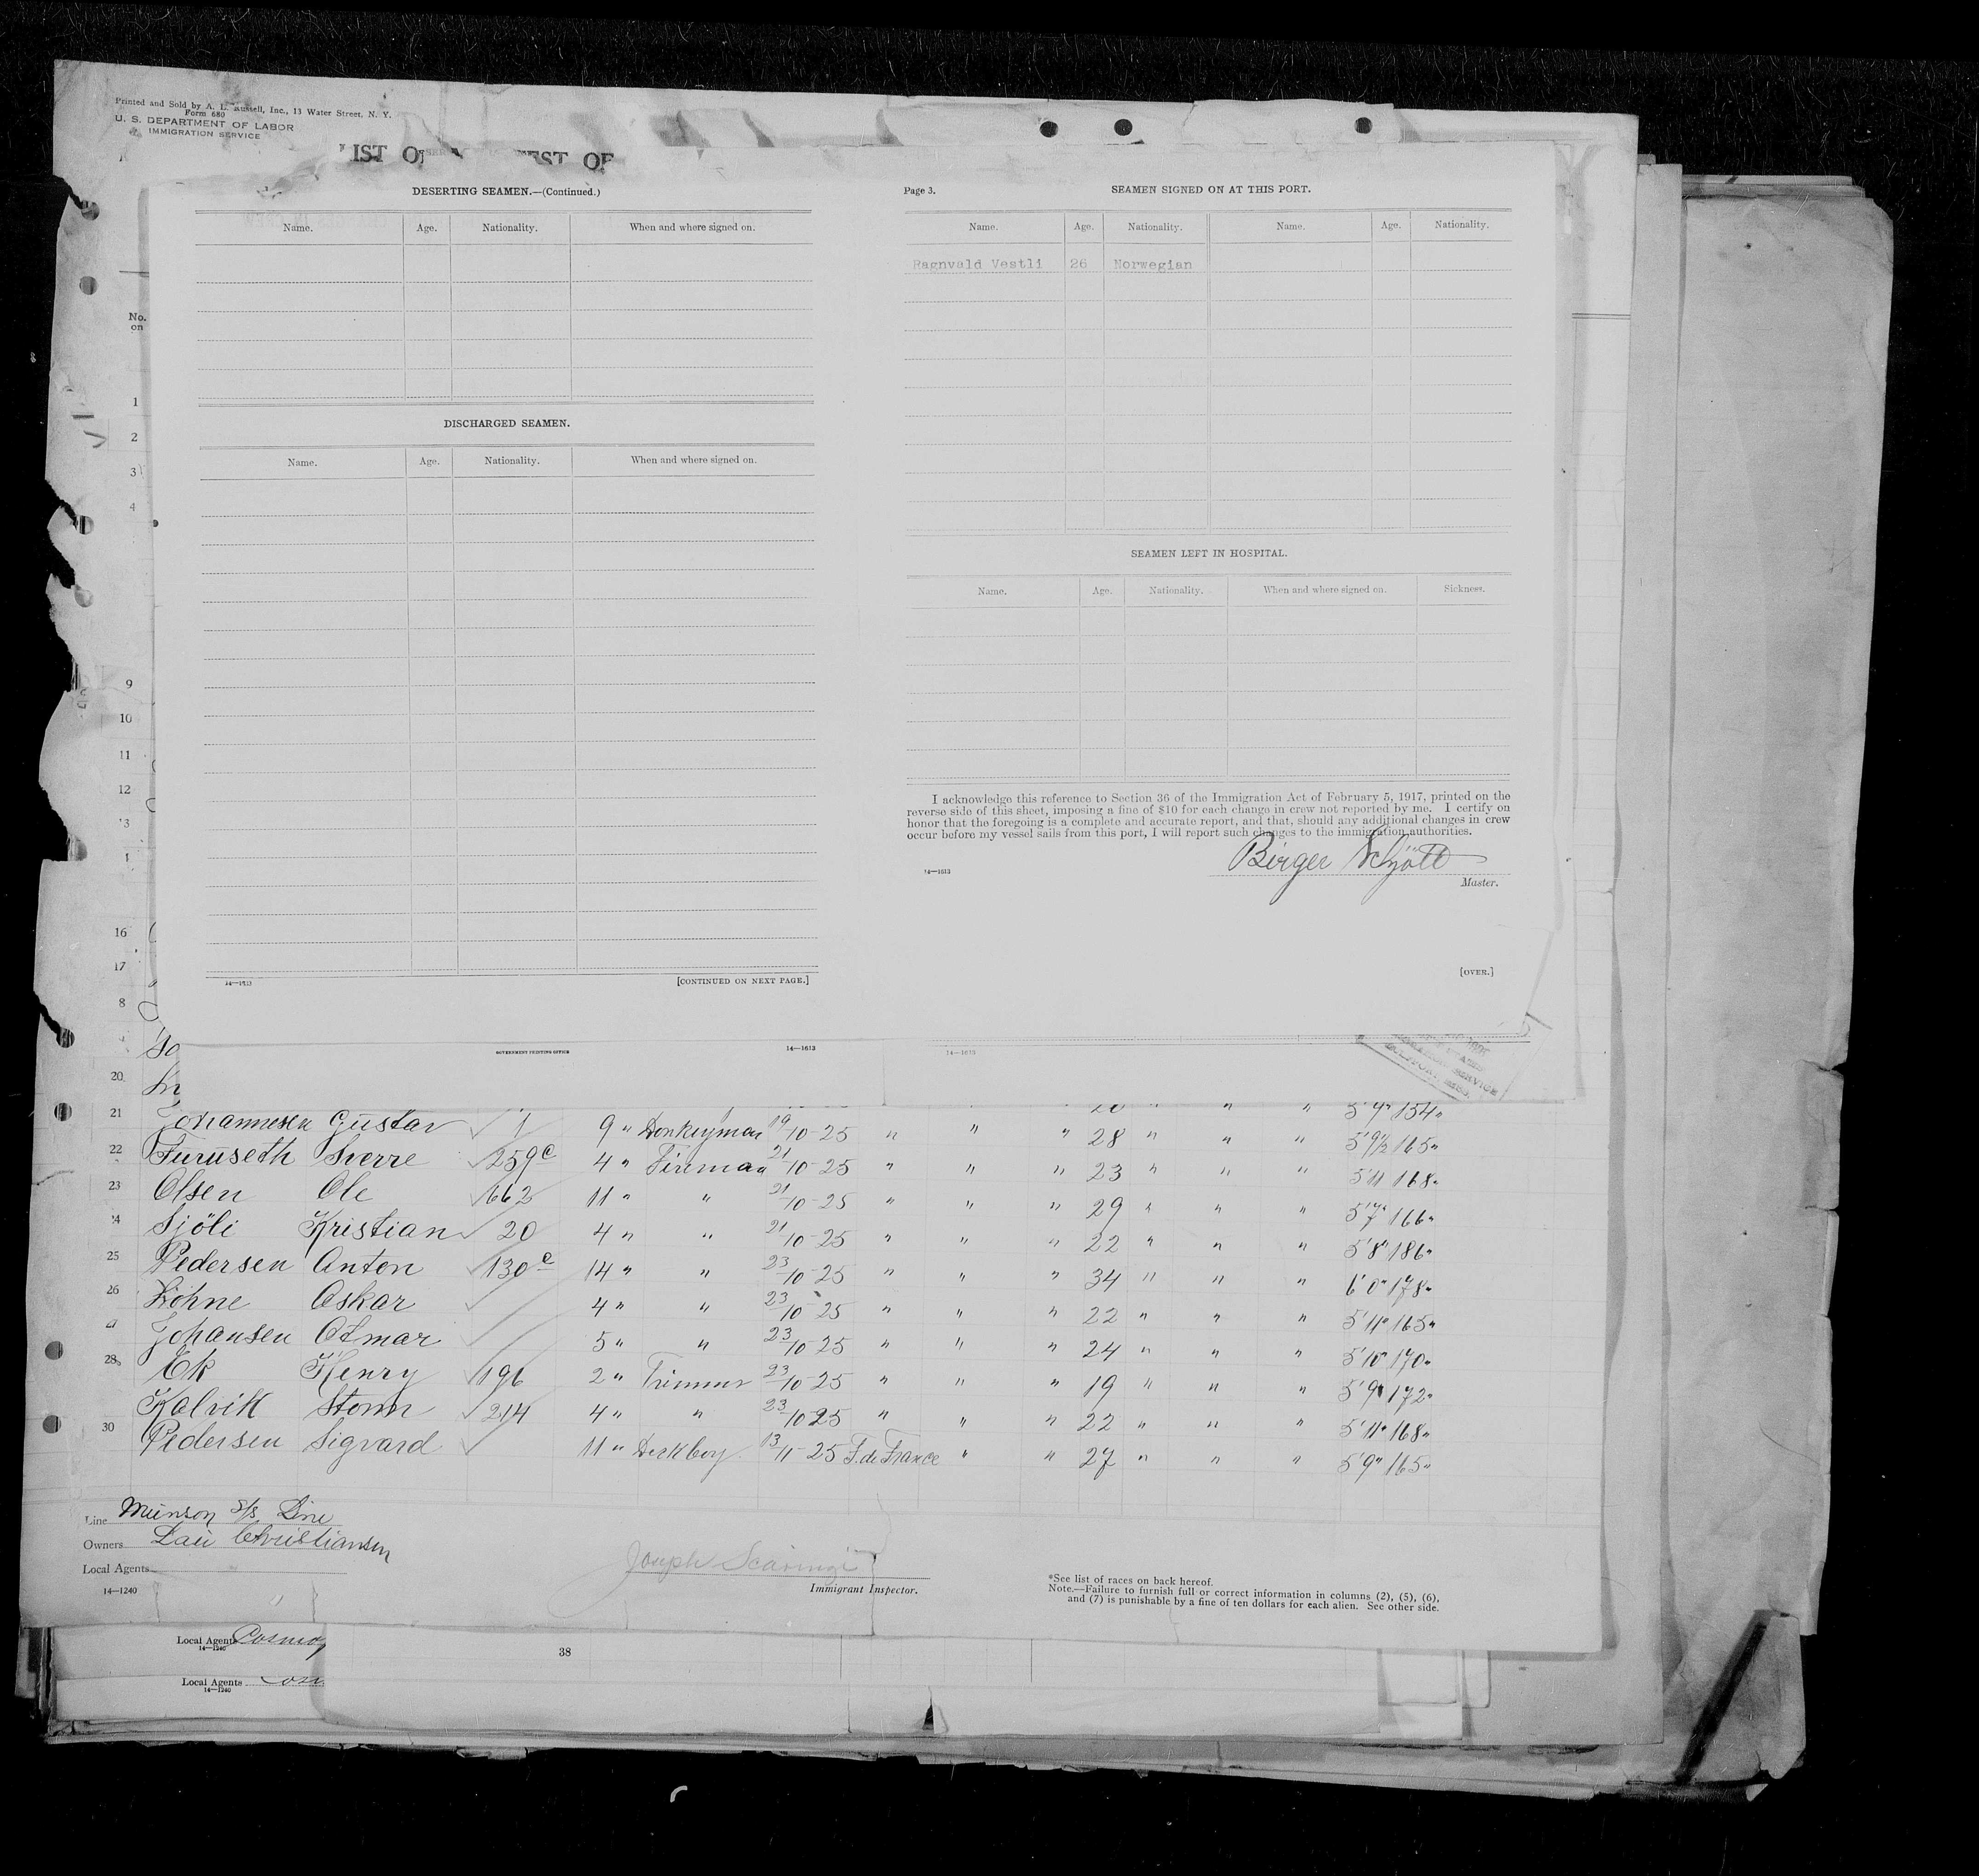 Printed and Sold by A. L. Russell, Inc., 13 Water Street, N. Y.
Form 680
U. S. DEPARTMENT OF LABOR
IMMIGRATION SERVICE
IST O EST OF
DESERTING SEAMEN.—(Continued.)
Name. Age. Nationality. When and where signed on.
DISCHARGED SEAMEN.
Name. Age. Nationality. When and where signed on.
14—1613 [CONTINUED ON NEXT PAGE.]
Page 3. SEAMEN SIGNED ON AT THIS PORT.
Name. Age. Nationality. Name. Age. Nationality.
Ragnvald Vestli 26 Norwegian
SEAMEN LEFT IN HOSPITAL.
Name. Age. Nationality. When and where signed on. Sickness.
I acknowledge this reference to Section 36 of the Immigration Act of February 5, 1917, printed on the
reverse side of this sheet, imposing a fine of $10 for each change in crew not reported by me. I certify on
honor that the foregoing is a complete and accurate report, and that, should any additional changes in crew
occur before my vessel sails from this port, I will report such changes to the immigration authorities.
Birger Schjött
14—1613 Master.
[OVER.]
No.
on
1
2
3
4
9
10
11
12
13
1
16
17
8
20
GOVERNMENT PRINTING OFFICE 14—1613 14—1613
20 " " " 5'9" 154"
21 Johannesen Gustav 1 9 " Donkeyman 19/10-25 " " " 28 " " " 5'9½ 165"
22 Furuseth Sverre 259c 4 " Fireman 21/10-25 " " " 23 " " " 5'11 168"
23 Olsen Ole 662 11 " " 21/10-25 " " " 29 " " " 5'7" 166"
24 Sjöli Kristian 20 4 " " 21/10-25 " " " 22 " " " 5'8" 186"
25 Pedersen Anton 130c 14 " " 23/10-25 " " " 34 " " " 6'0" 178"
26 Köhne Oskar 4 " " 23/10-25 " " " 22 " " " 5'11" 165"
27 Johansen Otmar 5 " " 23/10-25 " " " 24 " " " 5'10" 170"
28 Ek Henry 196 2 " Trimmer 23/10-25 " " " 19 " " " 5'9" 172"
Kalvik Storm 214 4 " " 23/10-25 " " " 22 " " " 5'11" 168"
30 Pedersen Sigvard 11 " Deckboy 13/11-25 F. de France " " 27 " " " 5'9" 165"
Line Munson S/S Line
Owners Lau Christiansen
Local Agents
14—1240
Joseph Scaringi
Immigrant Inspector.
*See list of races on back hereof.
Note.—Failure to furnish full or correct information in columns (2), (5), (6),
and (7) is punishable by a fine of ten dollars for each alien. See other side.
Local Agents
14—1240
38
Local Agents
14—1240